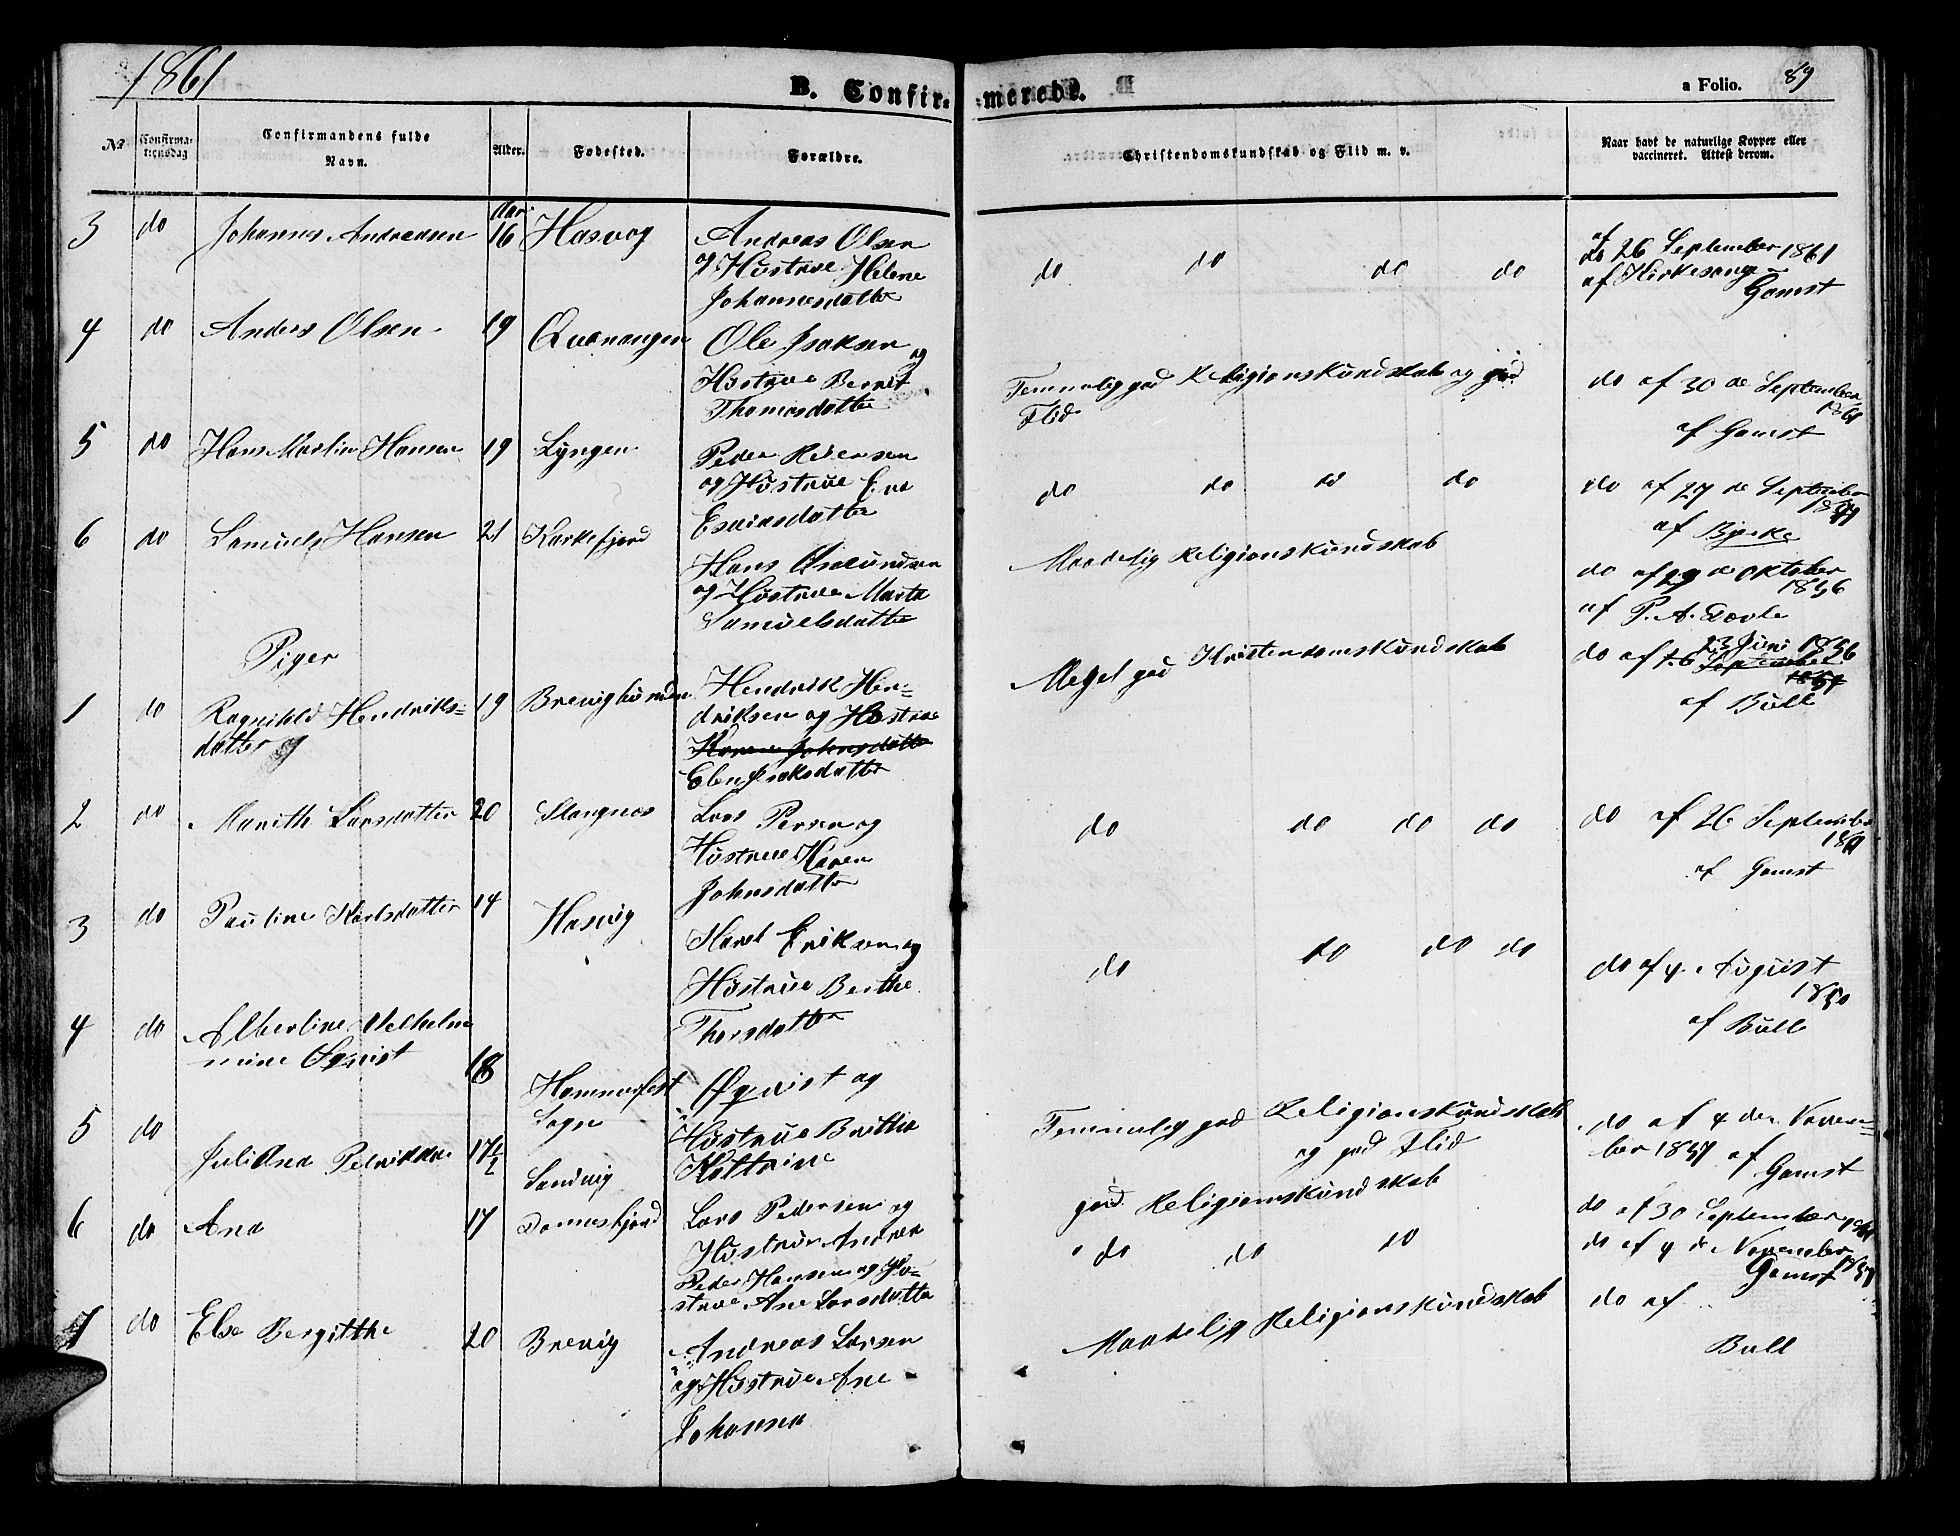 1861
B. Confir-
merede.
a Folio. 89
No
Confirma-
tionsdag
Confirmandens fulde
Navn.
Alder.
Fodested.
Forældre.
Christendomskundskab og Flid m. v.
Naar havt de naturlige Kopper eller
vaccineret. Attest derom.
3 do Johannes Andreasen 16 Hasvog
Andreas Olsen
og Hustrue Helene
Johannesdatter
do do do do
26 September 1861
af Kirkesanger
Gamst
4 do Anders Olsen 19 Qvænangen
Ole Isaksen
og
Hustrue Berret
Thomasdatter
Temmelig god Religionskundskab og god
Flid
do af 30 de September
1861
af Gamst
5 do Hans Martin Hansen 19 Lyngen
Peder Pedersen
og Hustrue Ene
Esaiasdatter
do do do do
do af 27 de September
af Bjerke
6 do Samuel Hansen 21 Karkefjord
Hans Amundsen
og Hustrue Marit
Samuelsdatter
Maadelig Religionskundskab
do af 29 de Oktober
1856
af P. A.
Piger
1 do Ragnihld Hendriks-
datter og
19 Brevighunden
Hendrik Hen-
driksen og Hustrue
Karen Johnsdatter
Elen Isaksdatter
Meget god Kristendomskundskab
do af 23 Juni 1856
16 September
af Bull
2 do Marith Larsdatter 20 Slangnæs
Lars Persen og
Hustrue Karen
Johnsdatter
do do do do
do af 26 September
1861
af Gamst
3 do Pauline Karlsdatter 14 Hasvig
Karel Eriksen og
Hustrue Berthe
Thorsdatter
do do do do
do af 4 August
1850
af Bull
4 do Albertine Velhelme
mine Øqvist
18
Hammerfest
Sogn
Øqvist og
Hustrue Brithe
Kattrine
Temmelig god Religionskundskab
og god Flid
do af 4 den Novem-
ber 1857 af
Gamst
5 do Juliana Pedrikke 17 1/2 Sandvig
Lars Pedersen og
Hustrue Andrea
god Religionskundskab
do af 30 September 1861
6 do Ana 17 Donnesfjord
Peder Hansen og Hu-
strue Ane Larsdatter
do do do
do af 4 de November
1857
Gamst
7 do Else Bergitthe 20 Brevig
Andreas Larsen
og Hustrue Ane
Johanna
Maadelig Religionskundskab
do af
Bull